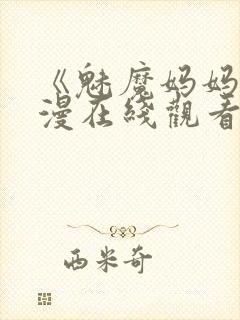 《魅魔妈妈
漫在线觀看
西米奇